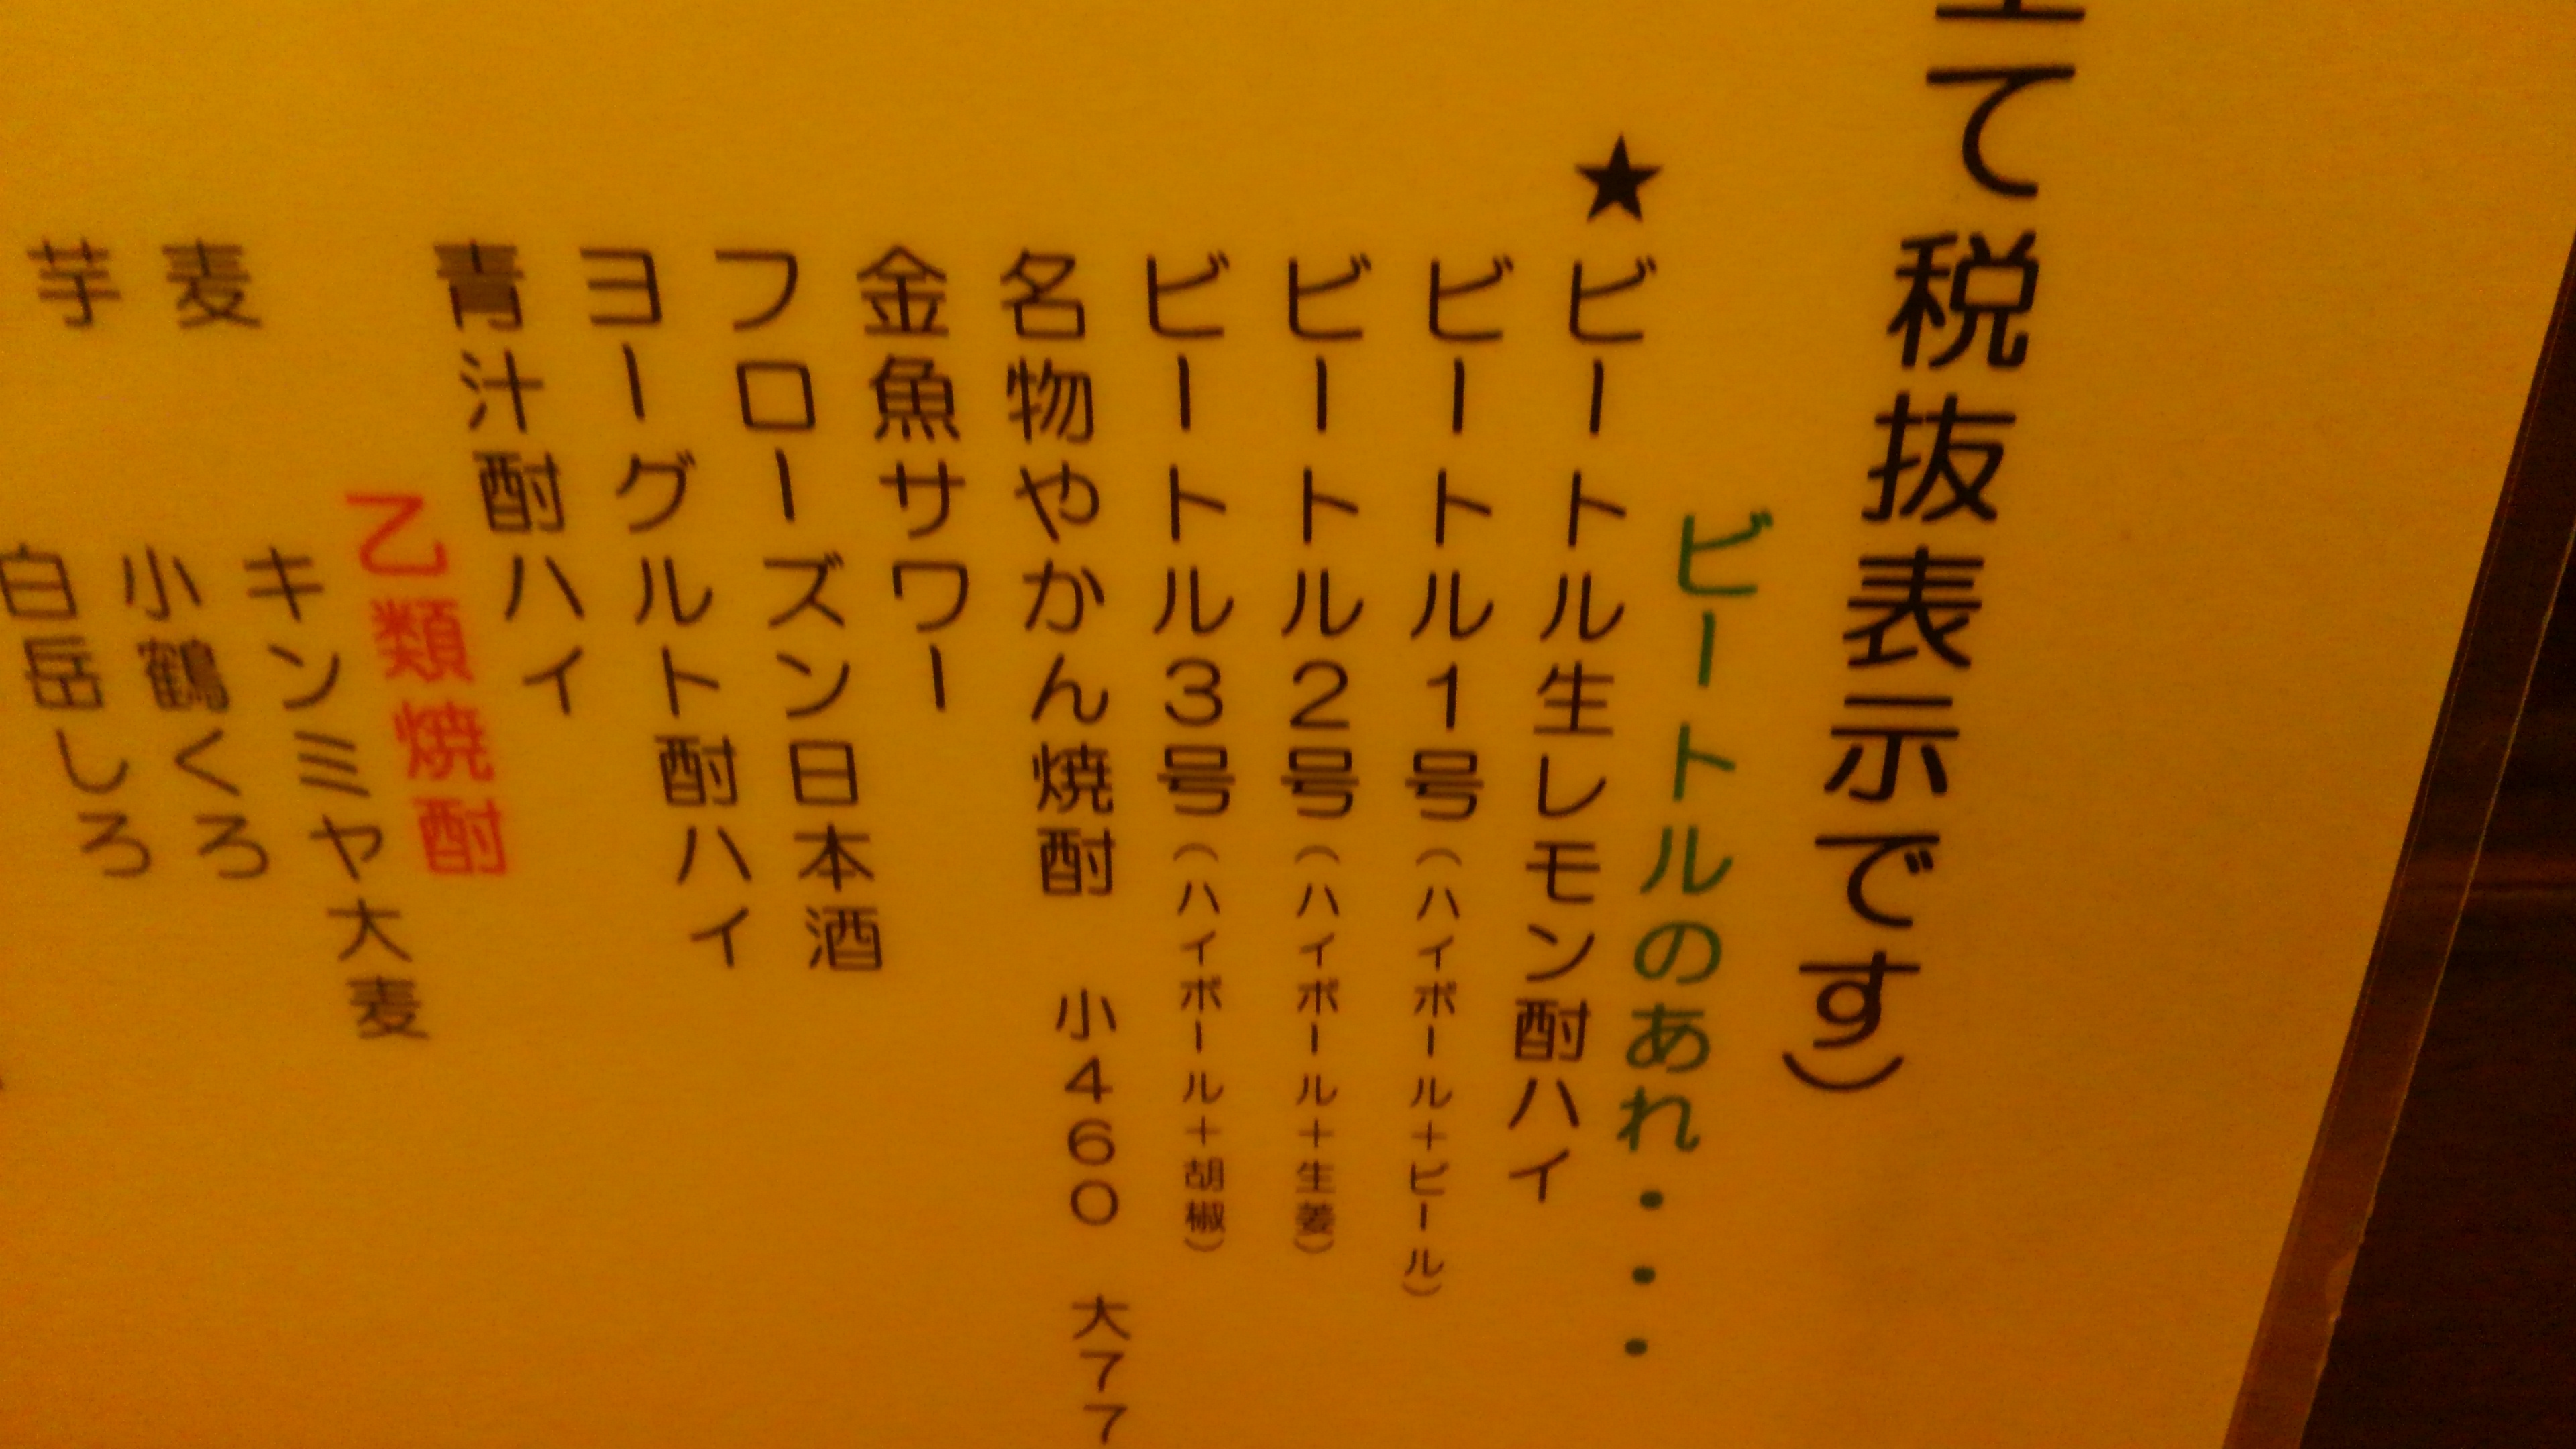 て税抜表示です）
ビートルのあれ・・・
★ビートル生レモン酎ハイ
ビートル1号（ハイボール＋ビール）
ビートル2号（ハイボール＋生姜）
ビートル3号（ハイボール＋胡椒）
名物やかん焼酎　小460　大77
金魚サワー
フローズン日本酒
ヨーグルト酎ハイ
青汁酎ハイ
乙類焼酎
キンミヤ大麦
麦　小鶴くろ
芋　白岳しろ